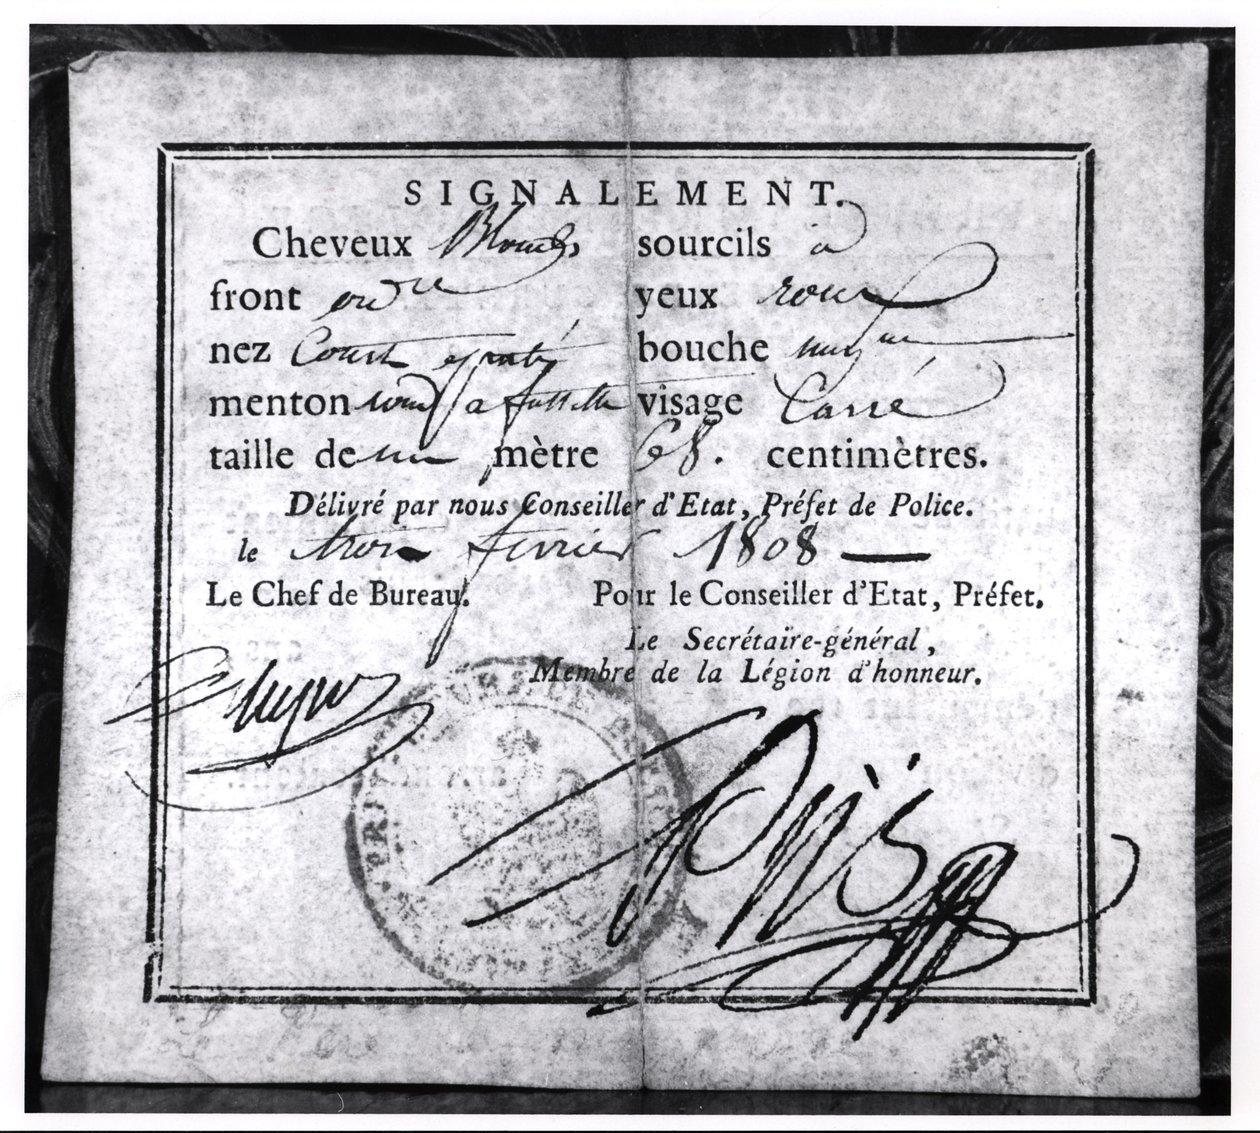 SIGNALEMENT.
Cheveux Blonds sourcils
front yeux roux
nez Court epaté bouche moyenne
menton rond a fossette visage Carré
taille de un mètre 68. centimètres.
Délivré par nous Conseiller d'Etat, Préfet de Police.
le trois fevrier 1808
Le Chef de Bureau. Pour le Conseiller d'Etat, Préfet.
Le Secrétaire-général,
Membre de la Légion d'honneur.
Piis